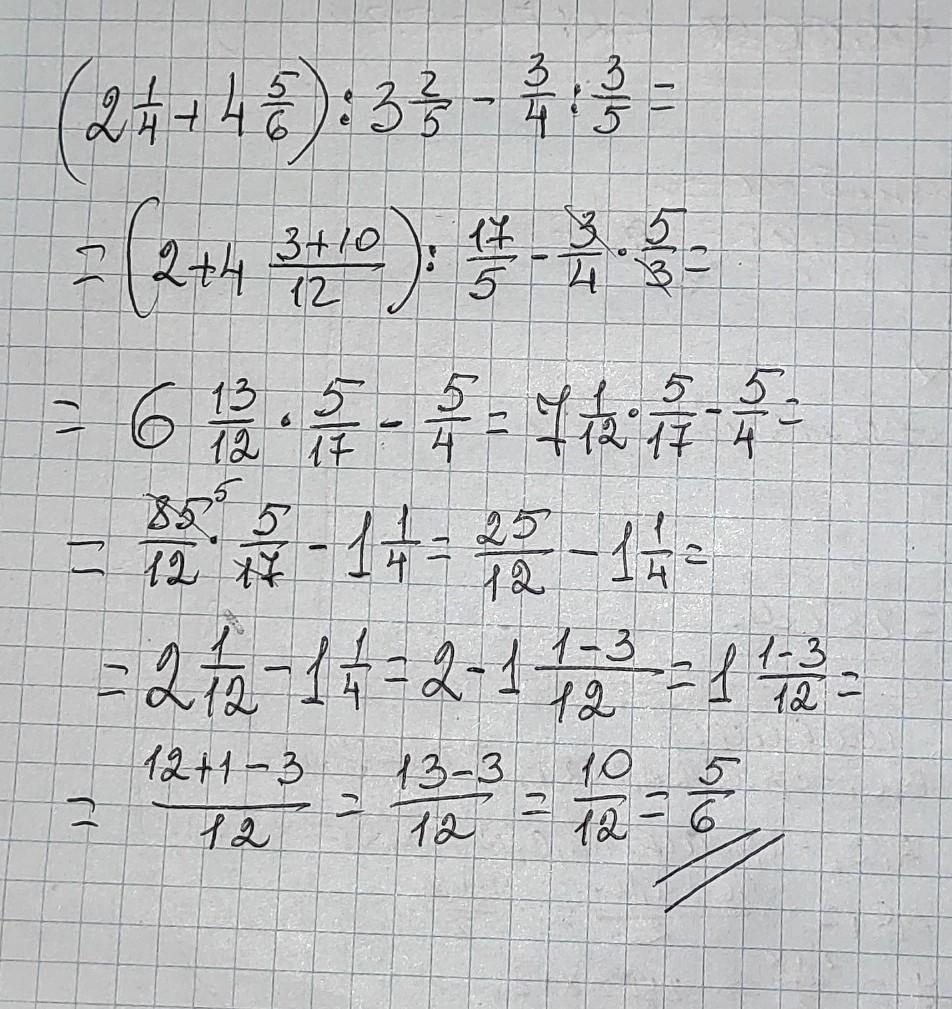 (2 1/4 + 4 5/6) : 3 2/5 - 3/4 : 3/5 =
= (2+4 (3+10)/12) : 17/5 - 3/4 · 5/3 =
= 6 13/12 · 5/17 - 5/4 = 7 1/12 · 5/17 - 5/4 =
= 85⁵/12 · 5/17 - 1 1/4 = 25/12 - 1 1/4 =
= 2 1/12 - 1 1/4 = 2-1 (1-3)/12 = 1 (1-3)/12 =
= (12+1-3)/12 = (13-3)/12 = 10/12 = 5/6